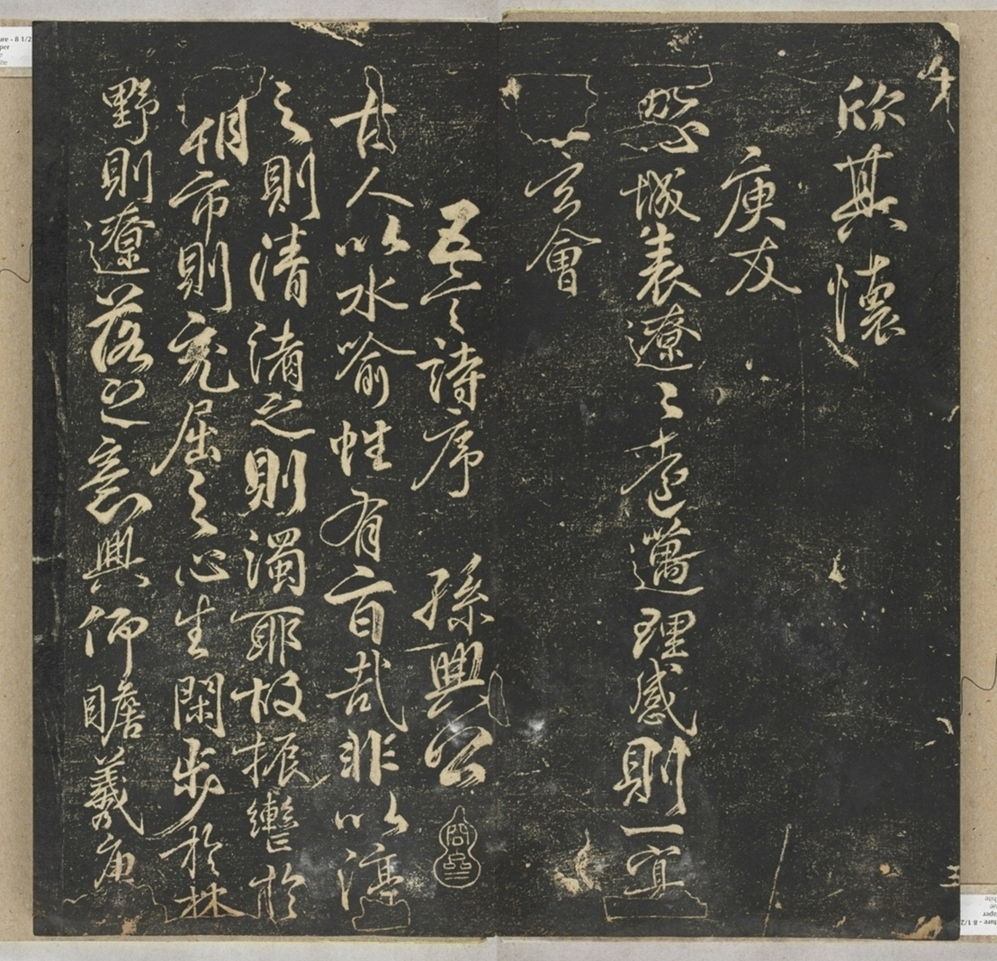 欣其懷
庾友
心域表遼〻遠邁理感則一冥
玄會
五言詩序 孫興公
古人以水喻性有旨哉非以渟
之則清淆之則濁耶故振轡於
市則充屈之心生閑步於林
野則遼落之意興仰瞻羲唐